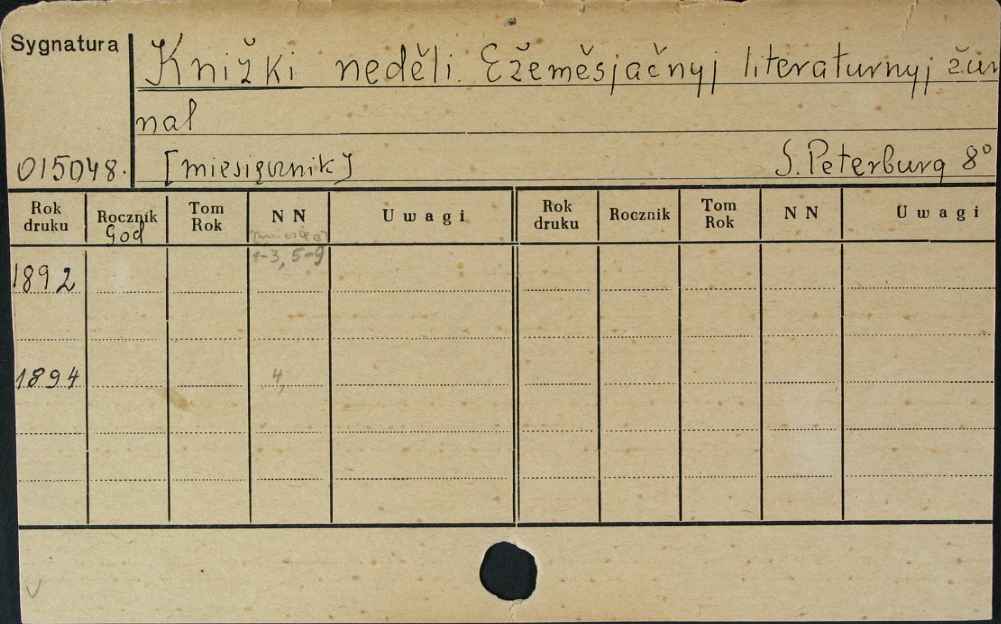 Sygnatura
Knižki neděli. Ežeměsjačnyj literaturnyj žur
nal
015048.
[miesięcznik]
S. Peterburg 8°
Rok druku
Rocznik
God
Tom Rok
N N
Uwagi
Rok druku
Rocznik
Tom Rok
N N
Uwagi
1892
1-3, 5-9
1894
4,